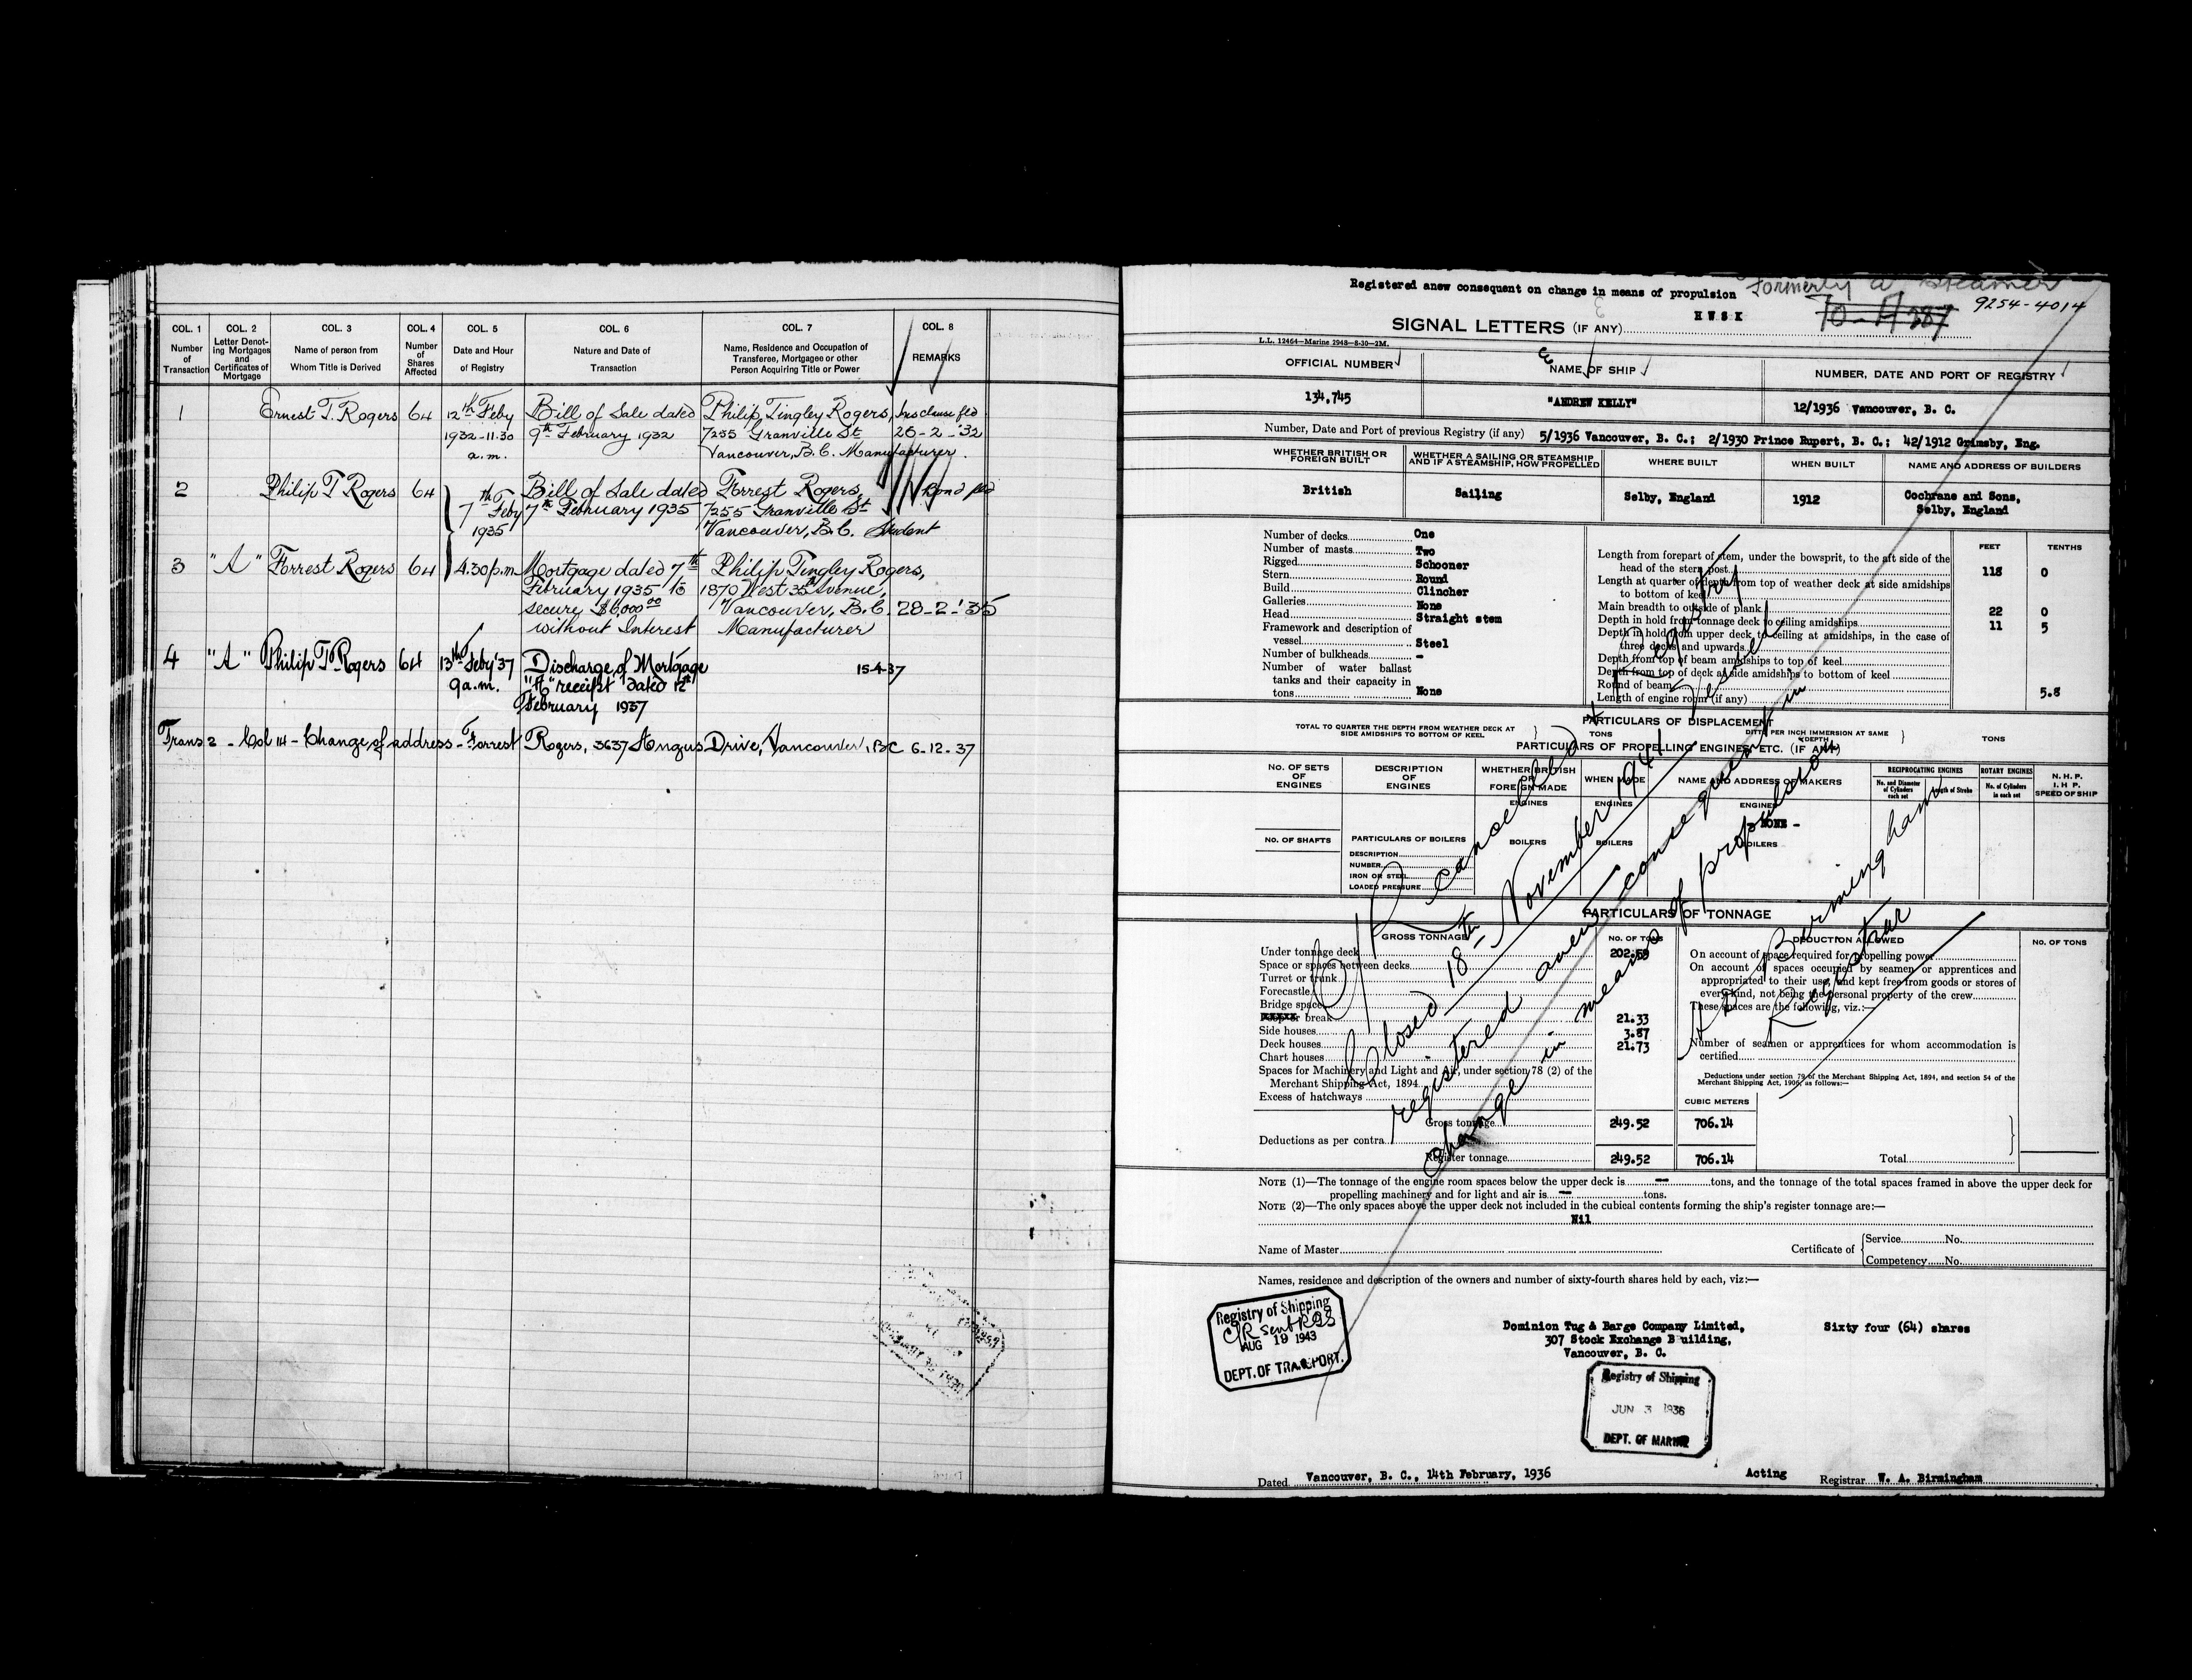 COL. 1 COL. 2 COL. 3 COL. 4 COL. 5 COL. 6 COL. 7 COL. 8
Number of Transaction
Letter Denoting Mortgages and Certificates of Mortgage
Name of person from Whom Title is Derived
Number of Shares Affected
Date and Hour of Registry
Nature and Date of Transaction
Name, Residence and Occupation of Transferee, Mortgagee or other Person Acquiring Title or Power
REMARKS
1 Ernest T. Rogers 64 12th Feby Bill of Sale dated Philip Tingley Rogers,
1932-11.30 9th February 1932 7255 Granville St 26-2-'32
a.m. Vancouver, B.C. Manufacturer.
2 Philip T Rogers 64 7th Feby Bill of Sale dated Forrest Rogers, Bond
1935 7th February 1935 7255 Granville St
Vancouver, B.C. Student
3 "A" Forrest Rogers 64 4.30 p.m. Mortgage dated 7th Philip Tingley Rogers,
February 1935 to 1870 West 35th Avenue,
secure $6,000.00 Vancouver, B.C. 28-2-'35
without Interest Manufacturer
4 "A" Philip T Rogers 64 13th Feby '37 Discharge of Mortgage 15-4-37
9 a.m. "A" receipt dated 12th
February 1937
Trans 2 - Col 14 - Change of address - Forrest Rogers, 3637 Angus Drive, Vancouver, BC 6.12.37
Registered anew consequent on change in means of propulsion
Formerly a Steamer
H W S K
9254-4014
SIGNAL LETTERS (IF ANY)
L.L. 12464—Marine 2948—8-30—2M.
OFFICIAL NUMBER NAME OF SHIP NUMBER, DATE AND PORT OF REGISTRY
134,745 "ANDREW KELLY" 12/1936 Vancouver, B. C.
Number, Date and Port of previous Registry (if any) 5/1936 Vancouver, B. C.; 2/1930 Prince Rupert, B. C.; 42/1912 Grimsby, Eng.
WHETHER BRITISH OR FOREIGN BUILT
WHETHER A SAILING OR STEAMSHIP AND IF A STEAMSHIP, HOW PROPELLED
WHERE BUILT
WHEN BUILT
NAME AND ADDRESS OF BUILDERS
British Sailing Selby, England 1912 Cochrane and Sons,
Selby, England
Number of decks One
Number of masts Two
Rigged Schooner
Stern Round
Build Clincher
Galleries None
Head Straight stem
Framework and description of
vessel Steel
Number of bulkheads -
Number of water ballast
tanks and their capacity in
tons None
FEET TENTHS
Length from forepart of stem, under the bowsprit, to the aft side of the
head of the stern post 118 0
Length at quarter of depth from top of weather deck at side amidships
to bottom of keel
Main breadth to outside of plank 22 0
Depth in hold from tonnage deck to ceiling amidships 11 5
Depth in hold from upper deck to ceiling at amidships, in the case of
three decks and upwards
Depth from top of beam amidships to top of keel
Depth from top of deck at side amidships to bottom of keel
Round of beam 5.8
Length of engine room (if any)
PARTICULARS OF DISPLACEMENT
TOTAL TO QUARTER THE DEPTH FROM WEATHER DECK AT SIDE AMIDSHIPS TO BOTTOM OF KEEL TONS
DITTO PER INCH IMMERSION AT SAME DEPTH TONS
PARTICULARS OF PROPELLING ENGINES, ETC. (IF ANY)
NO. OF SETS OF ENGINES
DESCRIPTION OF ENGINES
WHETHER BRITISH OR FOREIGN MADE
WHEN MADE
NAME AND ADDRESS OF MAKERS
RECIPROCATING ENGINES
No. and Diameter of Cylinders each set
Length of Stroke
ROTARY ENGINES
No. of Cylinders in each set
N. H. P.
I. H. P.
SPEED OF SHIP
ENGINES ENGINES ENGINES
- NONE -
NO. OF SHAFTS PARTICULARS OF BOILERS BOILERS BOILERS BOILERS
DESCRIPTION
NUMBER
IRON OR STEEL
LOADED PRESSURE
PARTICULARS OF TONNAGE
GROSS TONNAGE NO. OF TONS DEDUCTION ALLOWED NO. OF TONS
Under tonnage deck 202.59
Space or spaces between decks
Turret or trunk
Forecastle
Bridge space
break 21.33
Side houses 3.87
Deck houses 21.73
Chart houses
Spaces for Machinery and Light and Air, under section 78 (2) of the
Merchant Shipping Act, 1894
Excess of hatchways
Gross tonnage 249.52 706.14
Deductions as per contra
Register tonnage 249.52 706.14
On account of space required for propelling power
On account of spaces occupied by seamen or apprentices and
appropriated to their use, and kept free from goods or stores of
every kind, not being the personal property of the crew
These spaces are the following, viz.:—
Number of seamen or apprentices for whom accommodation is
certified
Deductions under section 79 of the Merchant Shipping Act, 1894, and section 54 of the
Merchant Shipping Act, 1906, as follows:—
CUBIC METERS
Total
C/R cancelled
Closed 18th November 1941
registered anew consequent on
change in means of propulsion
A Birmingham
Registrar
NOTE (1)—The tonnage of the engine room spaces below the upper deck is — tons, and the tonnage of the total spaces framed in above the upper deck for
propelling machinery and for light and air is — tons.
NOTE (2)—The only spaces above the upper deck not included in the cubical contents forming the ship's register tonnage are:—
Nil
Name of Master
Certificate of
Service No.
Competency No.
Names, residence and description of the owners and number of sixty-fourth shares held by each, viz:—
Registry of Shipping
C/R sent RGS
AUG 19 1943
DEPT. OF TRANSPORT.
Dominion Tug & Barge Company Limited, Sixty four (64) shares
307 Stock Exchange Building,
Vancouver, B. C.
Registry of Shipping
JUN 3 1936
DEPT. OF MARINE
Dated Vancouver, B. C., 14th February, 1936 Acting Registrar W. A. Birmingham